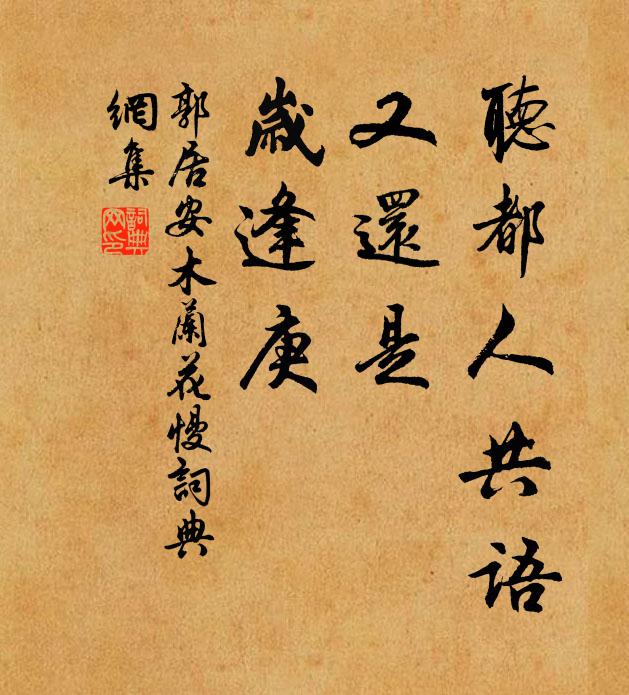 聽都人共語
又還是
歲逢庚
郭居安木蘭花慢詞典
網集
詞典
网印